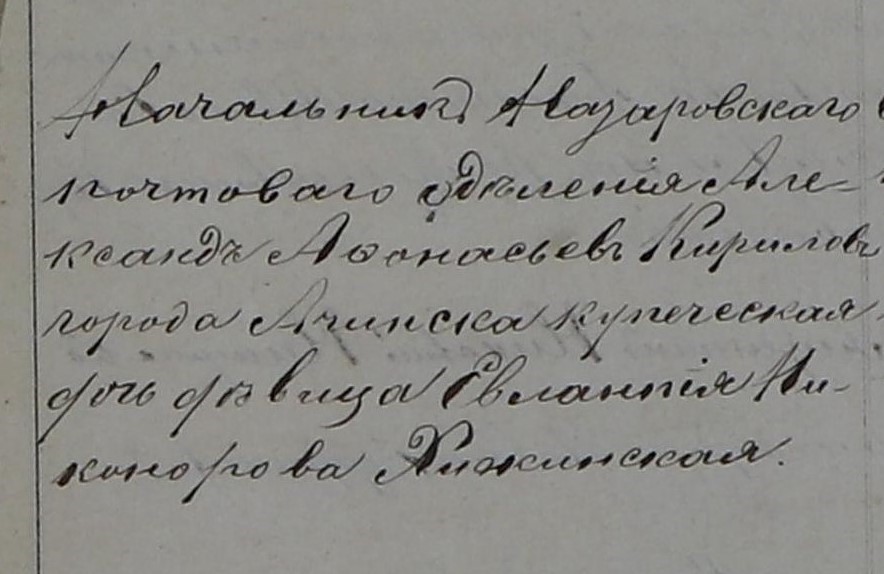 Начальникъ Назаровскаго
почтоваго одѣленія Але-
ксандъ Аѳонасьевъ Кириловъ
города Ачинска купеческая
дочь дѣвица Евланпія Ни-
конорова Хижинская.